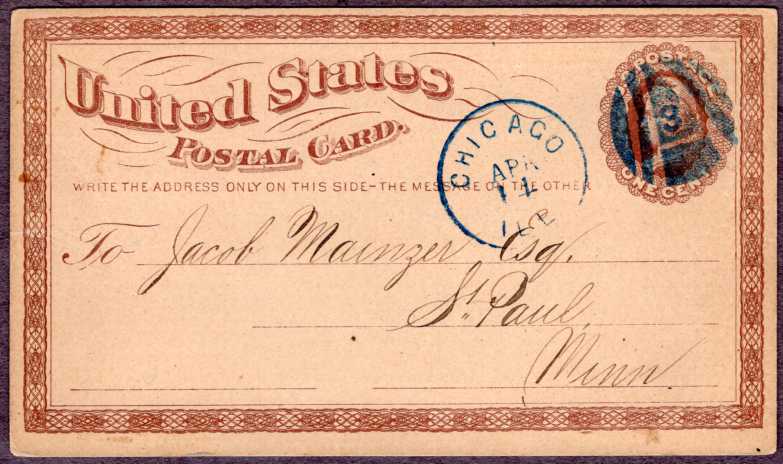 United States
POSTAL CARD.
WRITE THE ADDRESS ONLY ON THIS SIDE–THE MESSAGE ON THE OTHER
CHICAGO
APR
ILL
POSTAGE
ONE CENT
To Jacob Mainzer Esq.
St. Paul
Minn.